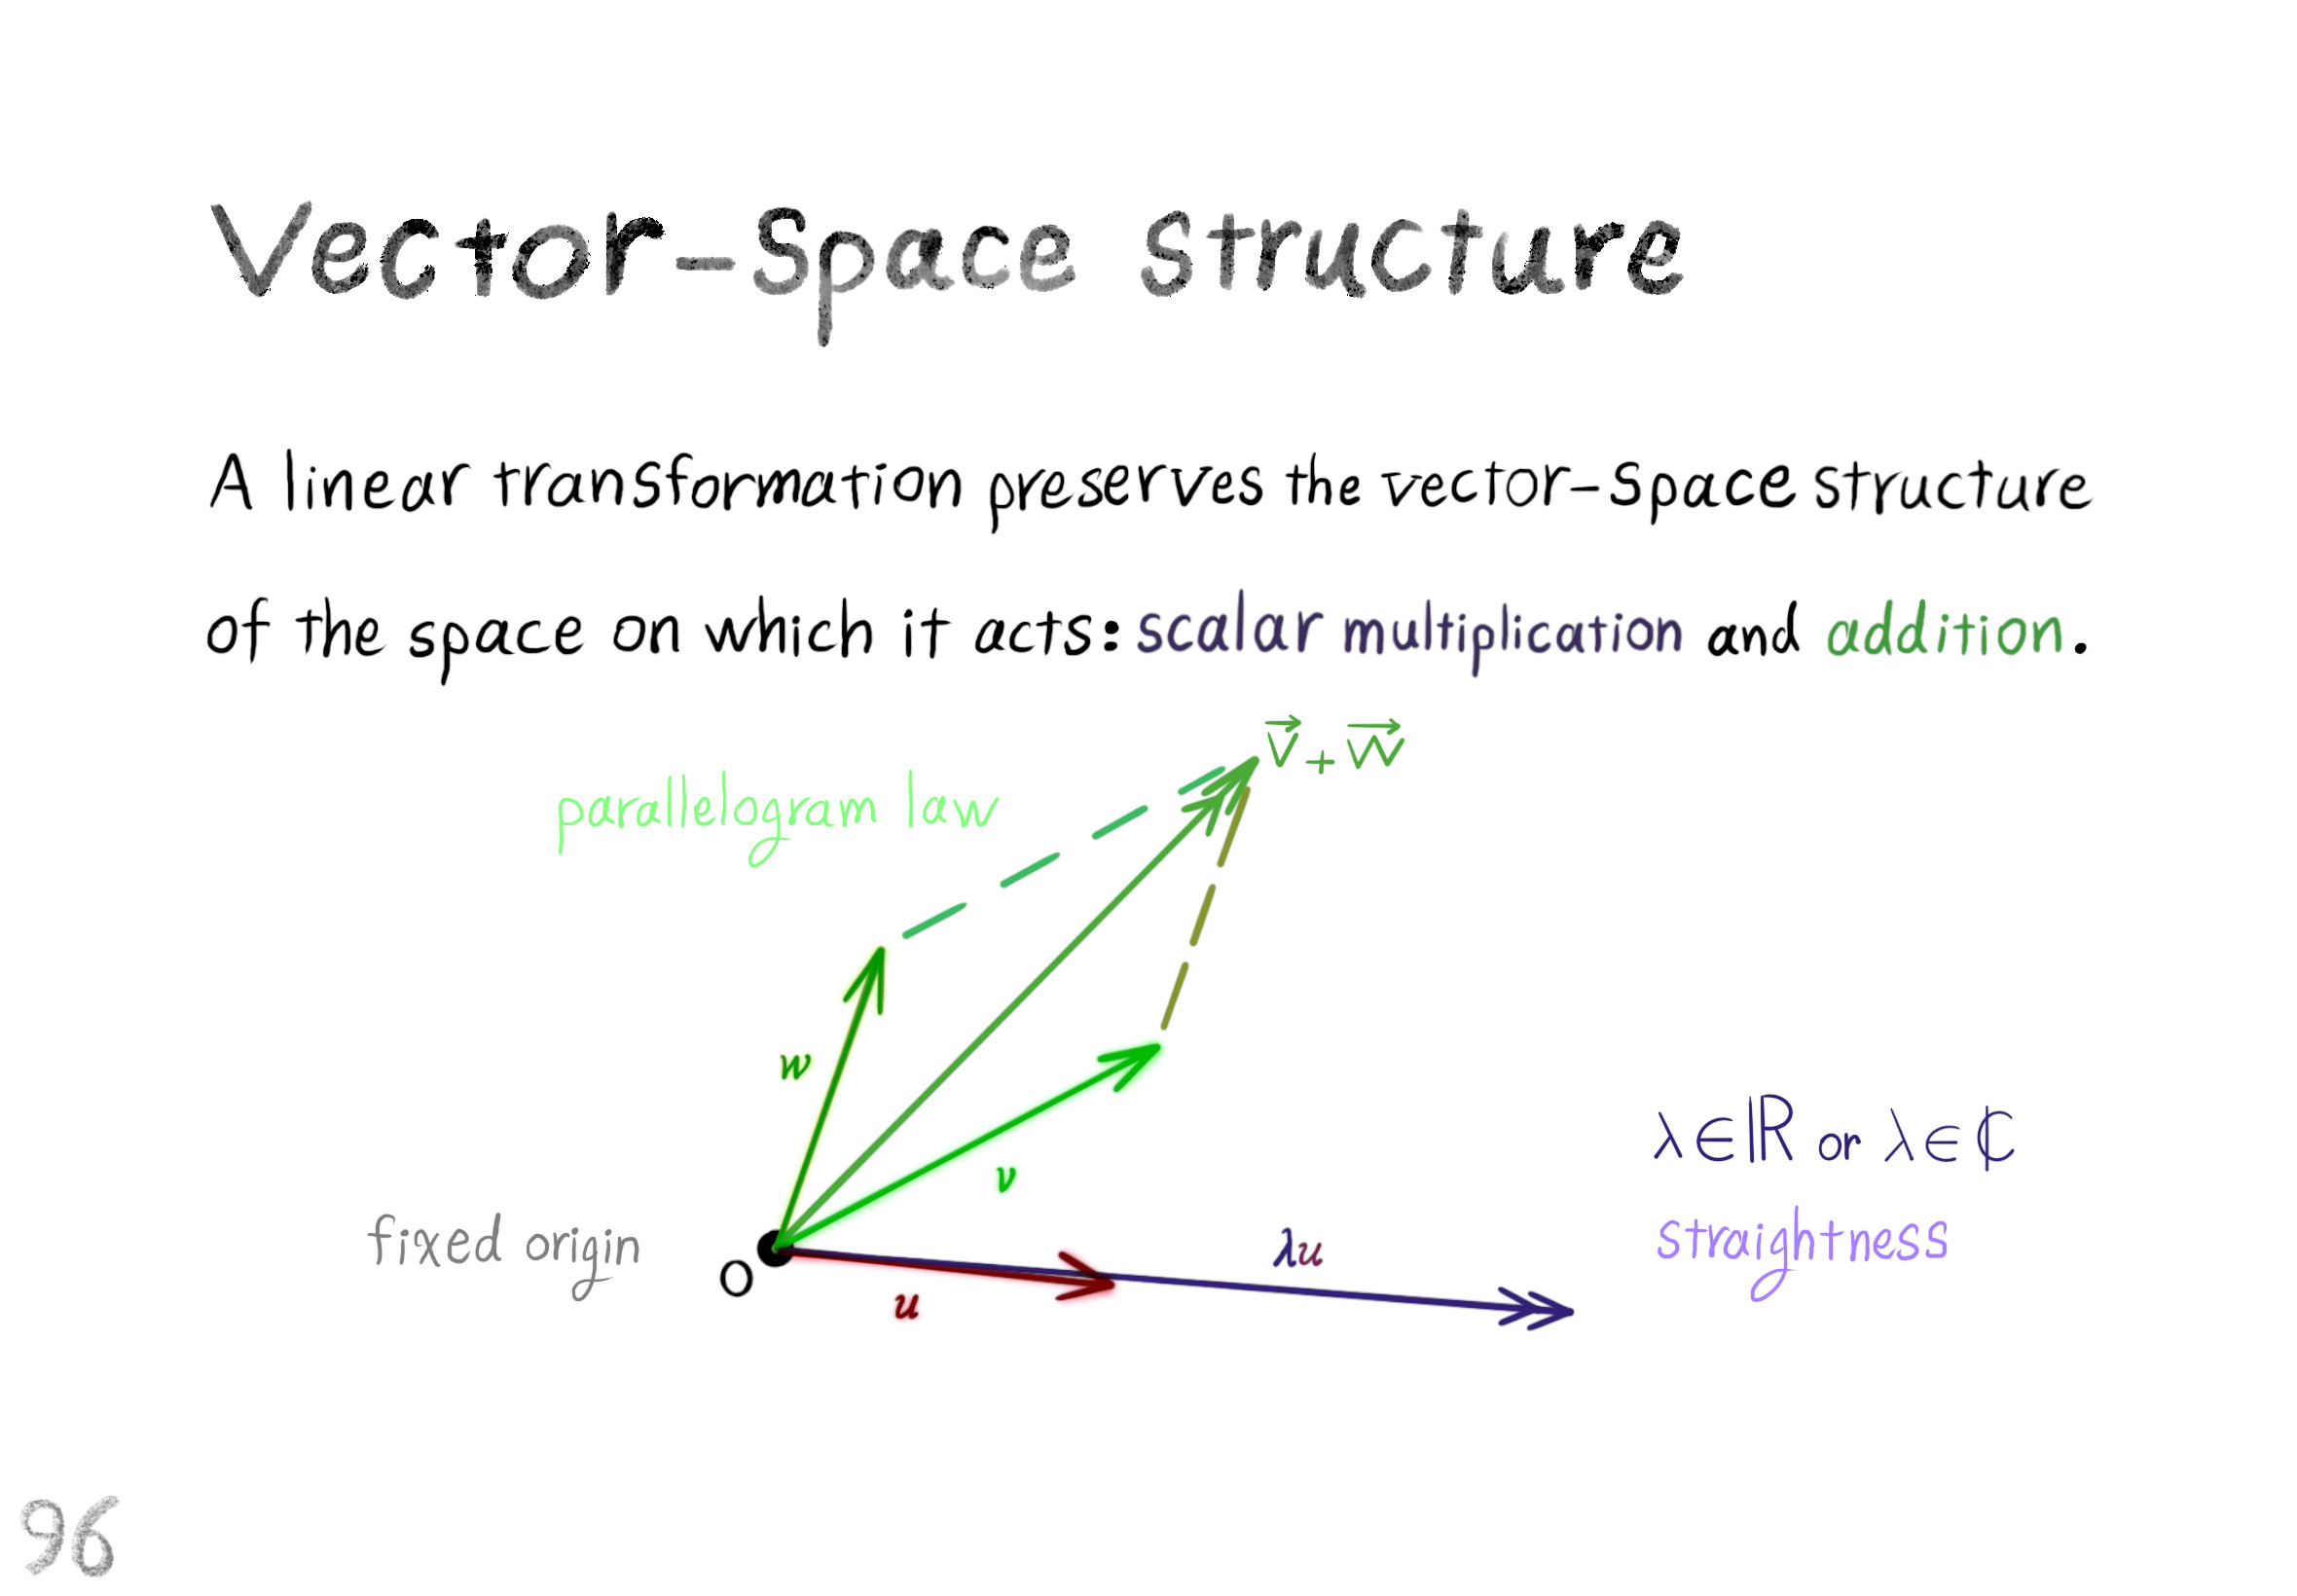 Vector-Space Structure
A linear transformation preserves the vector-space structure
of the space on which it acts: scalar multiplication and addition.
v⃗ + w⃗
parallelogram law
w
v
λ∈ℝ or λ∈ℂ
fixed origin
straightness
λu
O
u
96